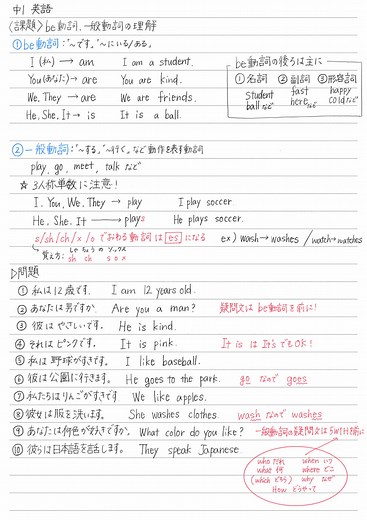 中1 英語
〈課題〉be動詞、一般動詞の理解
①be動詞:"〜です。", "〜にいる/ある。"
I (私) → am I am a student.
You(あなた) → are You are kind.
We, They → are We are friends.
He, She, It → is It is a ball.
be動詞の後ろは主に
①名詞 ②副詞 ③形容詞
student fast happy
ball など here など cold など
②一般動詞:"〜する", "〜行く"など動作を表す動詞
play, go, meet, talk など
☆3人称単数に注意!
I, You, We, They → play I play soccer.
He, She, It → plays He plays soccer.
s/sh/ch/x/oでおわる動詞は es になる ex) wash→washes / watch→watches
覚え方: しゃ ちょう の ソックス
sh ch s o x
▷問題
① 私は12歳です。 I am 12 years old.
② あなたは男ですか Are you a man? 疑問文はbe動詞を前に!
③ 彼はやさしいです。 He is kind.
④ それはピンクです。 It is pink. It is は It's でもOK!
⑤ 私は野球がすきです。 I like baseball.
⑥ 彼は公園に行きます。 He goes to the park. go なので goes
⑦ 私たちはりんごがすきです We like apples.
⑧ 彼女は服を洗います。 She washes clothes. wash なので washes
⑨ あなたは何色が好きですか。 What color do you like? 一般動詞の疑問文は5W1H前に
⑩ 彼らは日本語を話します。 They speak Japanese
who だれ when いつ
what 何 where どこ
(which どちら) why なぜ
How どうやって